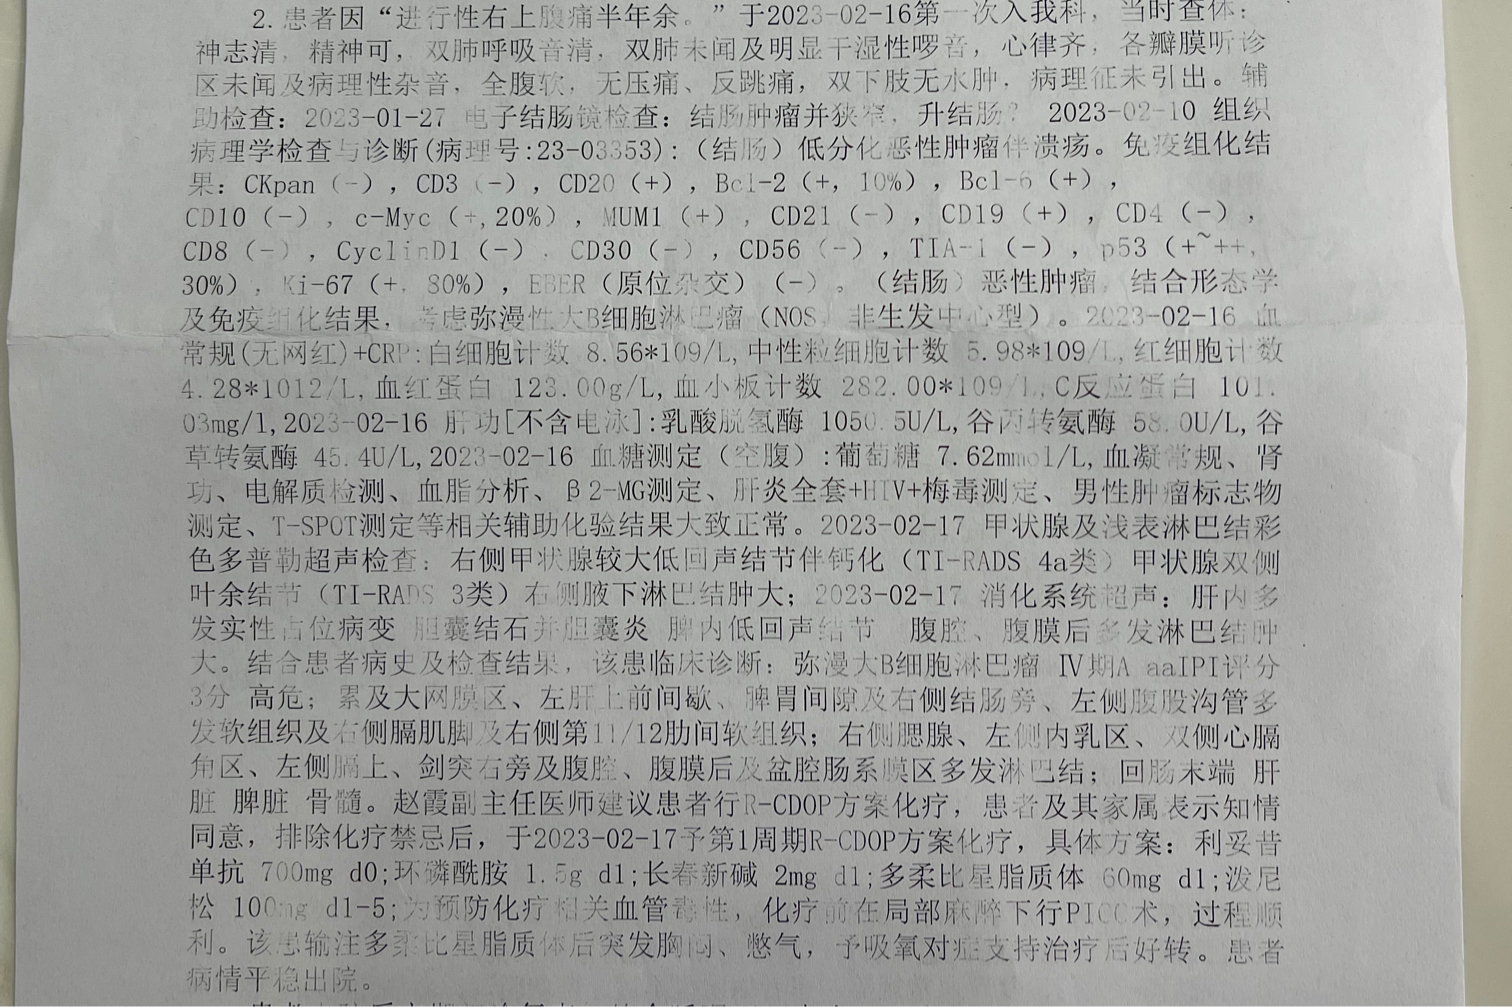 2. 患者因“进行性右上腹痛半年余。”于2023-02-16第一次入我科，当时查体：
神志清，精神可，双肺呼吸音清，双肺未闻及明显干湿性啰音，心律齐，各瓣膜听诊
区未闻及病理性杂音，全腹软，无压痛、反跳痛，双下肢无水肿，病理征未引出。辅
助检查：2023-01-27 电子结肠镜检查：结肠肿瘤并狭窄，升结肠？ 2023-02-10 组织
病理学检查与诊断(病理号:23-03353):（结肠）低分化恶性肿瘤伴溃疡。免疫组化结
果：CKpan（-），CD3（-），CD20（+），Bcl-2（+, 10%），Bcl-6（+），
CD10（-），c-Myc（+,20%），MUM1（+），CD21（-），CD19（+），CD4（-），
CD8（-），CyclinD1（-），CD30（-），CD56（-），TIA-1（-），p53（+~++,
30%），Ki-67（+, 80%），EBER（原位杂交）（-）。（结肠）恶性肿瘤，结合形态学
及免疫组化结果，考虑弥漫性大B细胞淋巴瘤（NOS，非生发中心型）。2023-02-16 血
常规(无网红)+CRP:白细胞计数 8.56*109/L,中性粒细胞计数 5.98*109/L,红细胞计数
4.28*1012/L,血红蛋白 123.00g/L,血小板计数 282.00*109/L,C反应蛋白 101.
03mg/l,2023-02-16 肝功[不含电泳]:乳酸脱氢酶 1050.5U/L,谷丙转氨酶 58.0U/L,谷
草转氨酶 45.4U/L,2023-02-16 血糖测定（空腹）:葡萄糖 7.62mmol/L,血凝常规、肾
功、电解质检测、血脂分析、β2-MG测定、肝炎全套+HIV+梅毒测定、男性肿瘤标志物
测定、T-SPOT测定等相关辅助化验结果大致正常。2023-02-17 甲状腺及浅表淋巴结彩
色多普勒超声检查：右侧甲状腺较大低回声结节伴钙化（TI-RADS 4a类）甲状腺双侧
叶余结节（TI-RADS 3类）右侧腋下淋巴结肿大；2023-02-17 消化系统超声：肝内多
发实性占位病变 胆囊结石并胆囊炎 脾内低回声结节 腹腔、腹膜后多发淋巴结肿
大。结合患者病史及检查结果，该患临床诊断：弥漫大B细胞淋巴瘤 Ⅳ期A aaIPI评分
3分 高危；累及大网膜区、左肝上前间歇、脾胃间隙及右侧结肠旁、左侧腹股沟管多
发软组织及右侧膈肌脚及右侧第11/12肋间软组织；右侧腮腺、左侧内乳区、双侧心膈
角区、左侧膈上、剑突右旁及腹腔、腹膜后及盆腔肠系膜区多发淋巴结；回肠末端 肝
脏 脾脏 骨髓。赵霞副主任医师建议患者行R-CDOP方案化疗，患者及其家属表示知情
同意，排除化疗禁忌后，于2023-02-17予第1周期R-CDOP方案化疗，具体方案：利妥昔
单抗 700mg d0;环磷酰胺 1.5g d1;长春新碱 2mg d1;多柔比星脂质体 60mg d1;泼尼
松 100mg d1-5;为预防化疗相关血管毒性，化疗前在局部麻醉下行PICC术，过程顺
利。该患输注多柔比星脂质体后突发胸闷、憋气，予吸氧对症支持治疗后好转。患者
病情平稳出院。